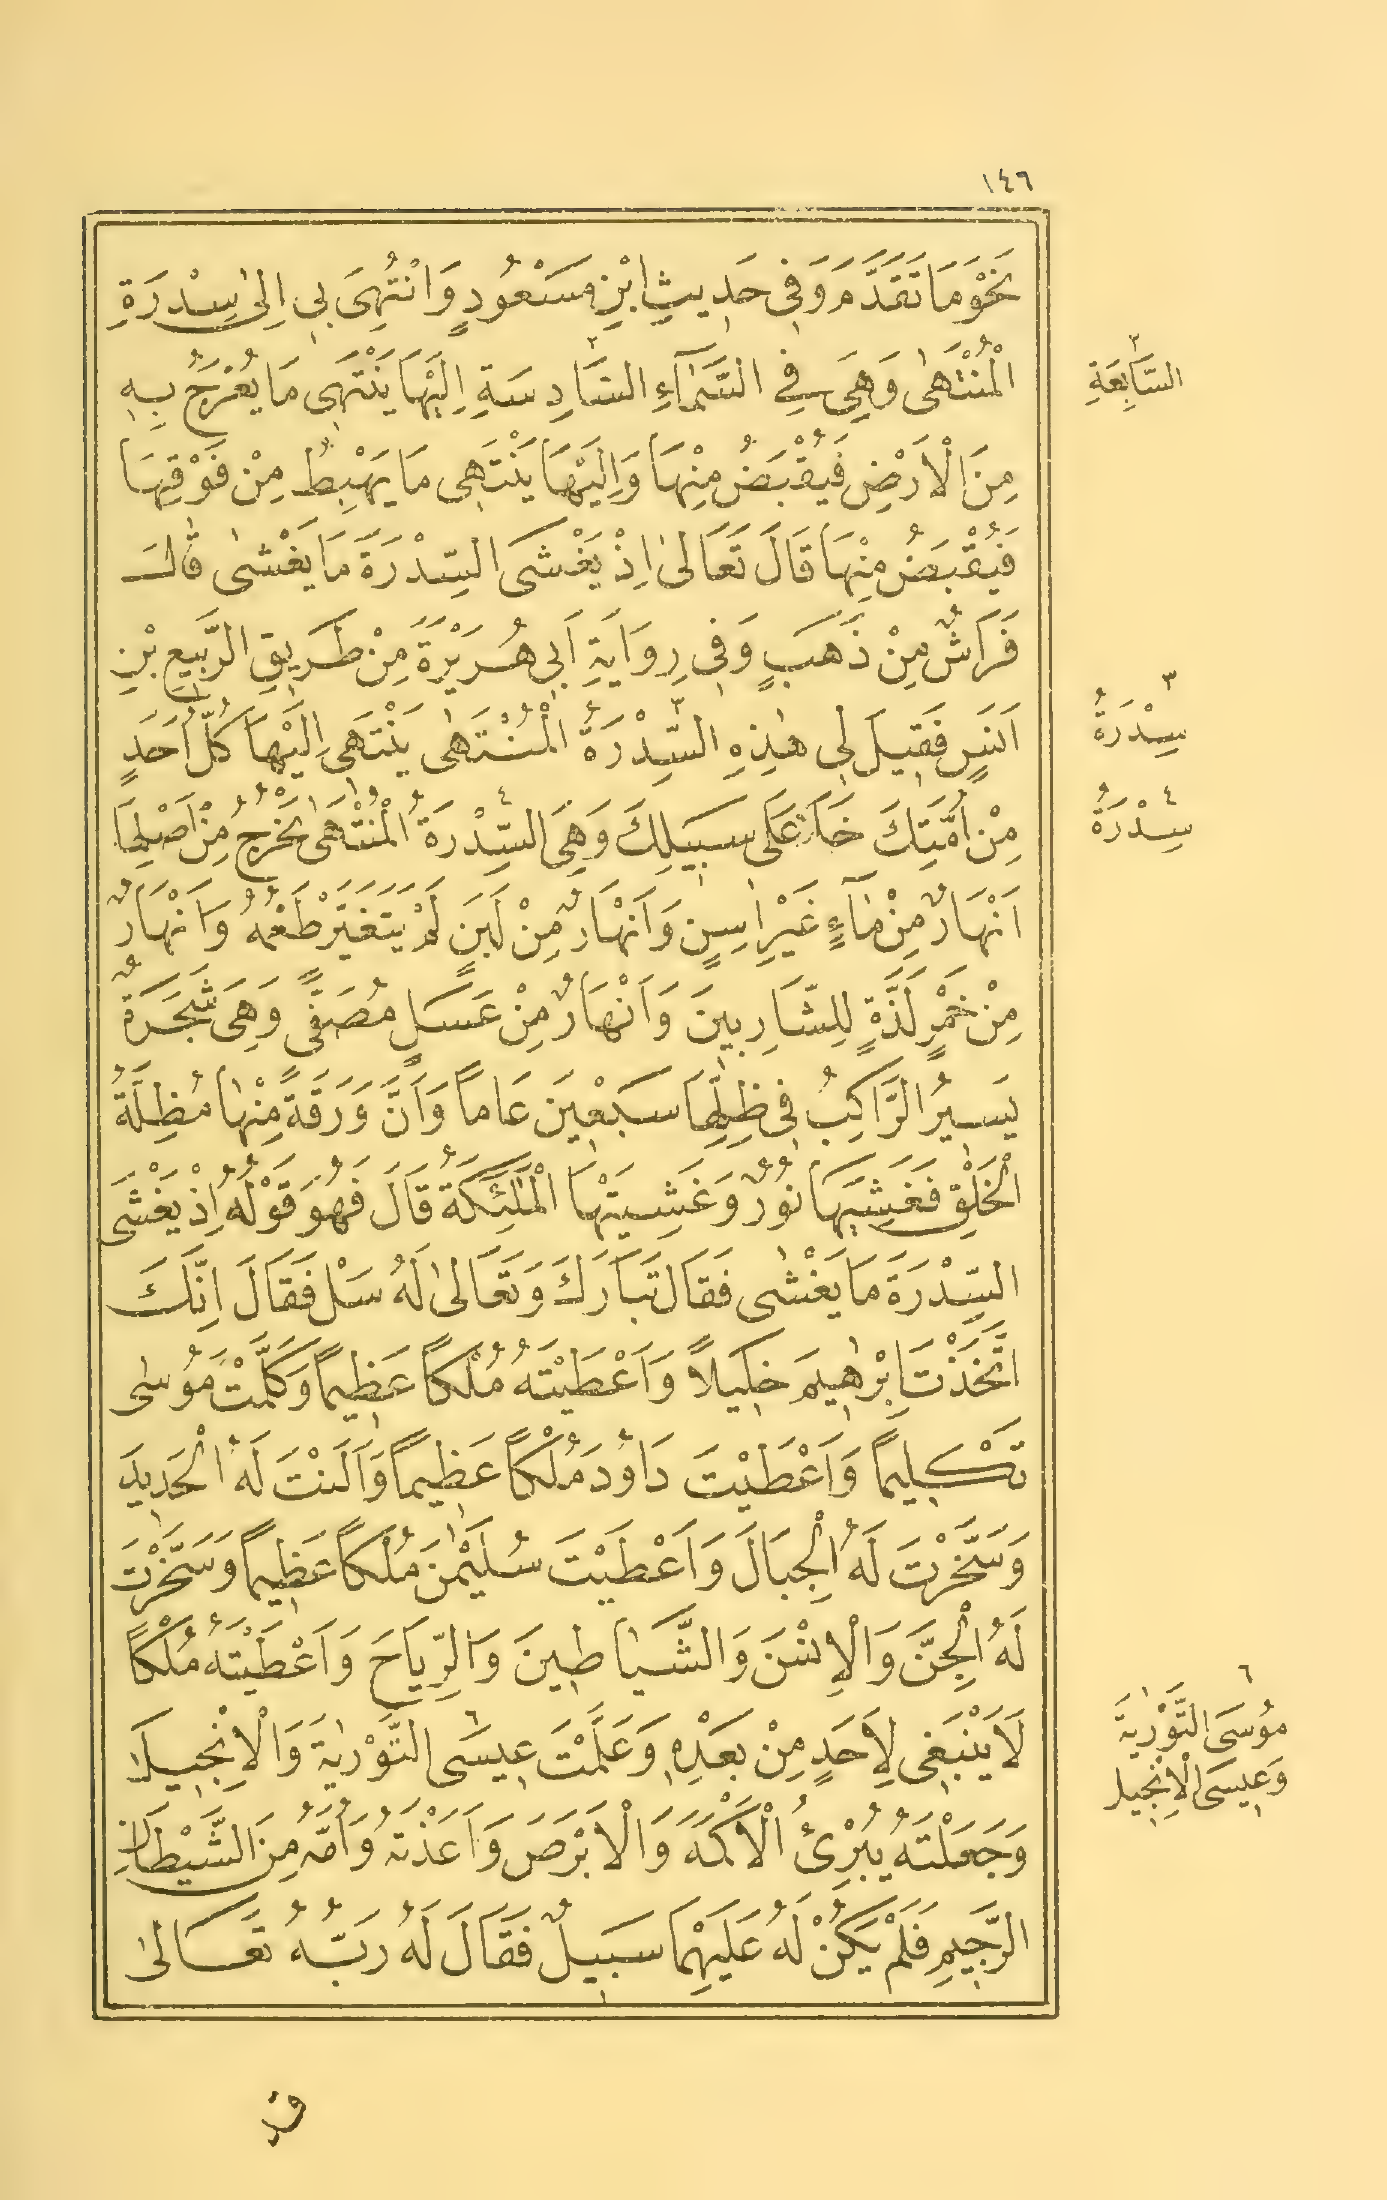 ١٤٦
نَحْوَ مَا تَقَدَّمَ وَفِي حَدِيثِ ابْنِ مَسْعُودٍ وَانْتُهِيَ بِي اِلىٰ سِدْرَةِ
الْمُنْتَهىٰ وَهِيَ فِي السَّمَآءِ السَّادِسَةِ اِلَيْهَا يَنْتَهِى مَا يُعْرَجُ بِهِ
مِنَ الْاَرْضِ فَيُقْبَضُ مِنْهَا وَاِلَيْهَا يَنْتَهِى مَا يَهْبِطُ مِنْ فَوْقِهَا
فَيُقْبَضُ مِنْهَا قَالَ تَعَالىٰ اِذْ يَغْشَى السِّدْرَةَ مَا يَغْشٰى قَالَ
فَرَاشٌ مِنْ ذَهَبٍ وَفِي رِوَايَةِ اَبِى هُرَيْرَةَ مِنْ طَرِيقِ الرَّبِيعِ بْنِ
اَنَسٍ فَقِيلَ لِى هٰذِهِ السِّدْرَةُ الْمُنْتَهٰى يَنْتَهِى اِلَيْهَا كُلُّ اَحَدٍ
مِنْ اُمَّتِكَ خَلَا عَلَى سَبِيلِكَ وَهِيَ السِّدْرَةُ الْمُنْتَهٰى يَخْرُجُ مِنْ اَصْلِهَا
اَنْهَارٌ مِنْ مَآءٍ غَيْرِ اٰسِنٍ وَاَنْهَارٌ مِنْ لَبَنٍ لَمْ يَتَغَيَّرْ طَعْمُهُ وَاَنْهَارٌ
مِنْ خَمْرٍ لَذَّةٍ لِلشَّارِبِينَ وَاَنْهَارٌ مِنْ عَسَلٍ مُصَفًّى وَهِيَ شَجَرَةٌ
يَسِيرُ الرَّاكِبُ فِي ظِلِّهَا سَبْعِينَ عَامًا وَاَنَّ وَرَقَةً مِنْهَا مُظِلَّةُ
الْخَلْقِ فَغَشِيَهَا نُورٌ وَغَشِيَتْهَا الْمَلٰئِكَةُ قَالَ فَهُوَ قَوْلُهُ اِذْ يَغْشَى
السِّدْرَةَ مَا يَغْشٰى فَقَالَ تَبَارَكَ وَتَعَالىٰ لَهُ سَلْ فَقَالَ اِنَّكَ
اتَّخَذْتَ اِبْرٰهِيمَ خَلِيلاً وَاَعْطَيْتَهُ مُلْكًا عَظِيمًا وَكَلَّمْتَ مُوسٰى
تَكْلِيمًا وَاَعْطَيْتَ دَاوُدَ مُلْكًا عَظِيمًا وَاَلَنْتَ لَهُ الْحَدِيدَ
وَسَخَّرْتَ لَهُ الْجِبَالَ وَاَعْطَيْتَ سُلَيْمٰنَ مُلْكًا عَظِيمًا وَسَخَّرْتَ
لَهُ الْجِنَّ وَالْاِنْسَ وَالشَّيَاطِينَ وَالرِّيَاحَ وَاَعْطَيْتَهُ مُلْكًا
لَا يَنْبَغِى لِاَحَدٍ مِنْ بَعْدِهِ وَعَلَّمْتَ عِيسَى التَّوْرٰيةَ وَالْاِنْجِيلَ
وَجَعَلْتَهُ يُبْرِئُ الْاَكْمَهَ وَالْاَبْرَصَ وَاَعَذْتَهُ وَاُمَّهُ مِنَ الشَّيْطَانِ
الرَّجِيمِ فَلَمْ يَكُنْ لَهُ عَلَيْهِمَا سَبِيلٌ فَقَالَ لَهُ رَبُّهُ تَعَالىٰ
٢
السَّابِعَةِ
٣
سِدْرَةُ
٤
سِدْرَةُ
٦
مُوسَى التَّوْرٰيةَ
وَعِيسَى الْاِنْجِيلَ